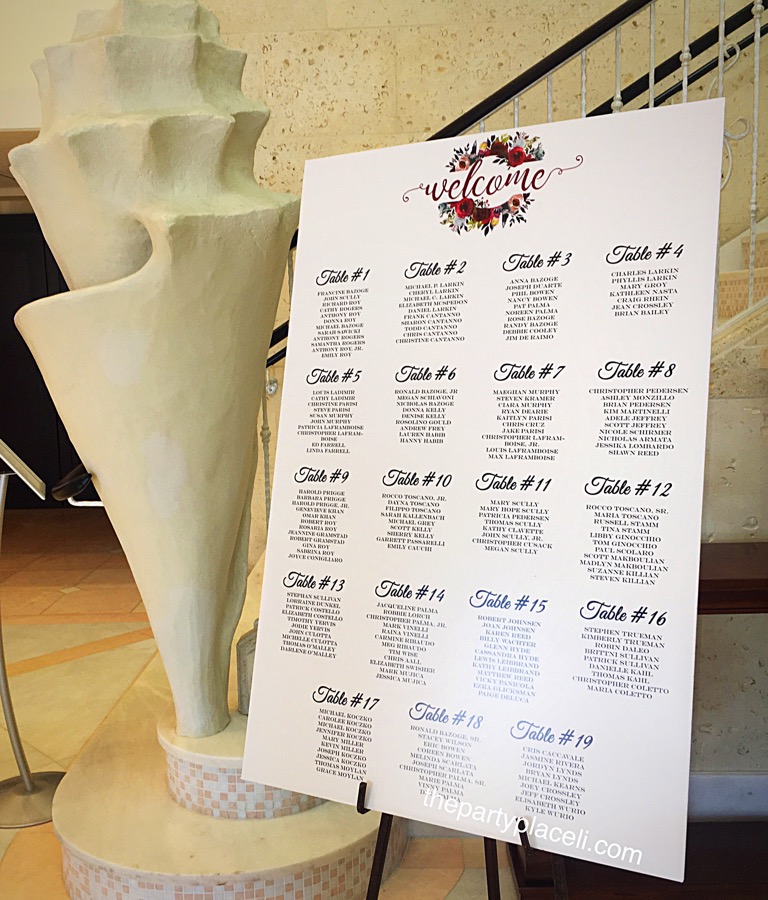 welcome
Table #1
FRANCINE BAZOGE
JOHN SCULLY
RICHARD ROY
CATHY ROGERS
ANTHONY ROY
DONNA ROY
MICHAEL BAZOGE
SARAH SAWICKI
ANTHONY ROGERS
SAMANTHA ROGERS
ANTHONY ROY, JR.
EMILY ROY
Table #2
MICHAEL P. LARKIN
CHERYL LARKIN
MICHAEL C. LARKIN
ELIZABETH MCSPEDON
DANIEL LARKIN
FRANK CANTANNO
SHARON CANTANNO
TODD CANTANNO
CHRIS CANTANNO
CHRISTINE CANTANNO
Table #3
ANNA BAZOGE
JOSEPH DUARTE
PHIL BOWEN
NANCY BOWEN
PAT PALMA
NOREEN PALMA
ROSE BAZOGE
RANDY BAZOGE
DEBBIE COOLEY
JIM DE RAIMO
Table #4
CHARLES LARKIN
PHYLLIS LARKIN
MARY GROY
KATHLEEN NASTA
CRAIG RHEIN
JEAN CROSSLEY
BRIAN BAILEY
Table #5
LOUIS LADIMIR
CATHY LADIMIR
CHRISTINE PARISI
STEVE PARISI
SUSAN MURPHY
JOHN MURPHY
PATRICIA LAFRAMBOISE
CHRISTOPHER LAFRAM-
BOISE
ED FARRELL
LINDA FARRELL
Table #6
RONALD BAZOGE, JR
MEGAN SCHIAVONI
NICHOLAS BAZOGE
DONNA KELLY
DENISE KELLY
ROSOLINO GOULD
ANDREW FREY
LAUREN HABIB
HANNY HABIB
Table #7
MAEGHAN MURPHY
STEVEN KRAMER
CIARA MURPHY
RYAN DEARIE
KAITLYN PARISI
CHRIS CRUZ
JAKE PARISI
CHRISTOPHER LAFRAM-
BOISE, JR.
LOUIS LAFRAMBOISE
MAX LAFRAMBOISE
Table #8
CHRISTOPHER PEDERSEN
ASHLEY MONZILLO
BRIAN PEDERSEN
KIM MARTINELLI
ADELE JEFFREY
SCOTT JEFFREY
NICOLE SCHIRMER
NICHOLAS ARMATA
JESSIKA LOMBARDO
SHAWN REED
Table #9
HAROLD PRIGGE
BARBARA PRIGGE
HAROLD PRIGGE, JR.
GENEVIEVE KHAN
OMAR KHAN
ROBERT ROY
ROSARIA ROY
JEANNINE GRAMSTAD
ROBERT GRAMSTAD
GINA ROY
SABRINA ROY
JOYCE CONIGLIARO
Table #10
ROCCO TOSCANO, JR.
DAYNA TOSCANO
FILIPPO TOSCANO
SARAH KALLENBACH
MICHAEL GREY
SCOTT KELLY
SHERRY KELLY
GARRETT PASSARELLI
EMILY CAUCHI
Table #11
MARY SCULLY
MARY HOPE SCULLY
PATRICIA PEDERSEN
THOMAS SCULLY
KATHY CLAVETTE
JOHN SCULLY, JR.
CHRISTOPHER CUSACK
MEGAN SCULLY
Table #12
ROCCO TOSCANO, SR.
MARIA TOSCANO
RUSSELL STAMM
TINA STAMM
LIBBY GINOCCHIO
TOM GINOCCHIO
PAUL SCOLARO
SCOTT MAKBOULIAN
MADLYN MAKBOULIAN
SUZANNE KILLIAN
STEVEN KILLIAN
Table #13
STEPHAN SULLIVAN
LORRAINE DUNKEL
PATRICK COSTELLO
ELIZABETH COSTELLO
TIMOTHY YERVIS
JODIE YERVIS
JOHN CULOTTA
MICHELLE CULOTTA
THOMAS O'MALLEY
DARLENE O'MALLEY
Table #14
JACQUELINE PALMA
ROBBIE LORCH
CHRISTOPHER PALMA, JR
MARK VINELLI
RAINA VINELLI
CARMINE RIBAUDO
MEG RIBAUDO
TIM WISE
CHRIS AALL
ELIZABETH SWISHER
MARK MUJICA
JESSICA MUJICA
Table #15
ROBERT JOHNSEN
JOAN JOHNSEN
KAREN REED
BILLY WACHTER
GLENN HYDE
CASSANDRA HYDE
LEWIS LEIBBRAND
KATHY LEIBBRAND
MATTHEW REED
VICKY PANICOLA
EZRA GLICKSMAN
PAIGE DELUCA
Table #16
STEPHEN TRUEMAN
KIMBERLY TRUEMAN
ROBIN DALEO
BRITTNI SULLIVAN
PATRICK SULLIVAN
DANIELLE KAHL
THOMAS KAHL
CHRISTOPHER COLETTO
MARIA COLETTO
Table #17
MICHAEL KOCZKO
CAROLEE KOCZKO
MICHAEL KOCZKO
JENNIFER KOCZKO
MARY MILLER
KEVIN MILLER
JOSEPH KOCZKO
JESSICA KOCZKO
THOMAS MOYLAN
GRACE MOYLAN
Table #18
RONALD BAZOGE, SR.
STACEY WILSON
ERIC BOWEN
COREEN BOWEN
MELINDA SCARLATA
JOSEPH SCARLATA
CHRISTOPHER PALMA, SR.
MARIE PALMA
VINNY PALMA
Table #19
CHRIS CACCAVALE
JASMINE RIVERA
JORDYN LYNDS
BRYAN LYNDS
MICHAEL KEARNS
JOEY CROSSLEY
JEFF CROSSLEY
ELISABETH WURIO
KYLE WURIO
thepartyplaceli.com